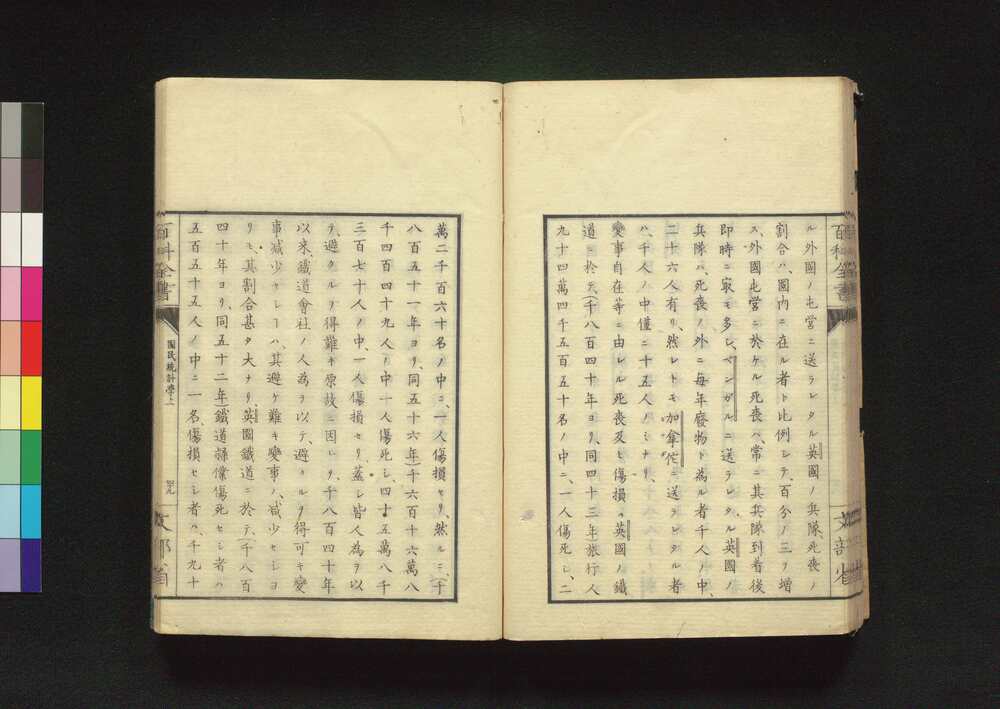 ル外國ノ屯營ニ送ラレタル英國ノ兵隊、死喪ノ
割合ハ、國內ニ在ル者ト比例シテ、百分ノ三ヲ増
ス、外國屯營ニ於ケル死喪ハ、常ニ其兵隊到着後
即時ニ㝡モ多シ、ベンガルニ送ラレタル英國ノ
兵隊ハ、死喪ノ外ニ每年廢物ト為ル者千人ノ中、
二十六人有リ、然レトモ加拿佗ニ送ラレタル者
ハ、千人ノ中僅ニ十五人ノミナリ、
變事自在等ニ由レル死喪及ヒ傷損、英國ノ鐵
道ニ於テ、(千八百四十年ヨリ、同四十三年)旅行人
九十四萬四千五百五十名ノ中ニ、一人傷死シ、二
萬二千百六十名ノ中ニ、一人傷損セリ、然ルニ、(千
八百五十一年ヨリ、同五十六年)千六百十六萬八
千四百四十九人ノ中一人傷死シ、四十五萬八千
三百七十人ノ中、一人傷損セリ、蓋シ皆人為ヲ以
テ、避クルヲ得難キ原故ニ因レリ、千八百四十年
以來、鐵道會社ノ人為ヲ以テ、避クルヲ得可キ變
事減少セシヿハ、其避ケ難キ變事ノ、減少セシヨ
リモ、其割合甚タ大ナリ、英國鐵道ニ於テ、(千八百
四十年ヨリ、同五十二年)鐵道諸僕傷死セシ者ハ
五百五十五人ノ中ニ一名、傷損セシ者ハ、千九十
百科全書
國民統計學上
四九
文部省
百科全書
文部省